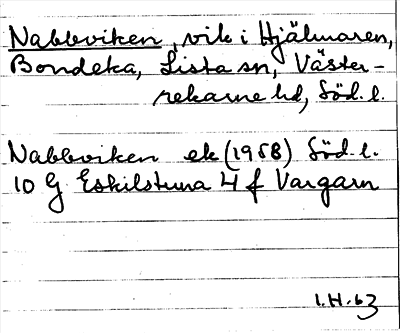 Nabbviken, vik i Hjälmaren,
Bondeka, Lista sn, Väster-
rekarne hd, Söd. l.
Nabbviken ek (1958) Söd. l.
10 G Eskilstuna 4 f Vargarn
I.H.63